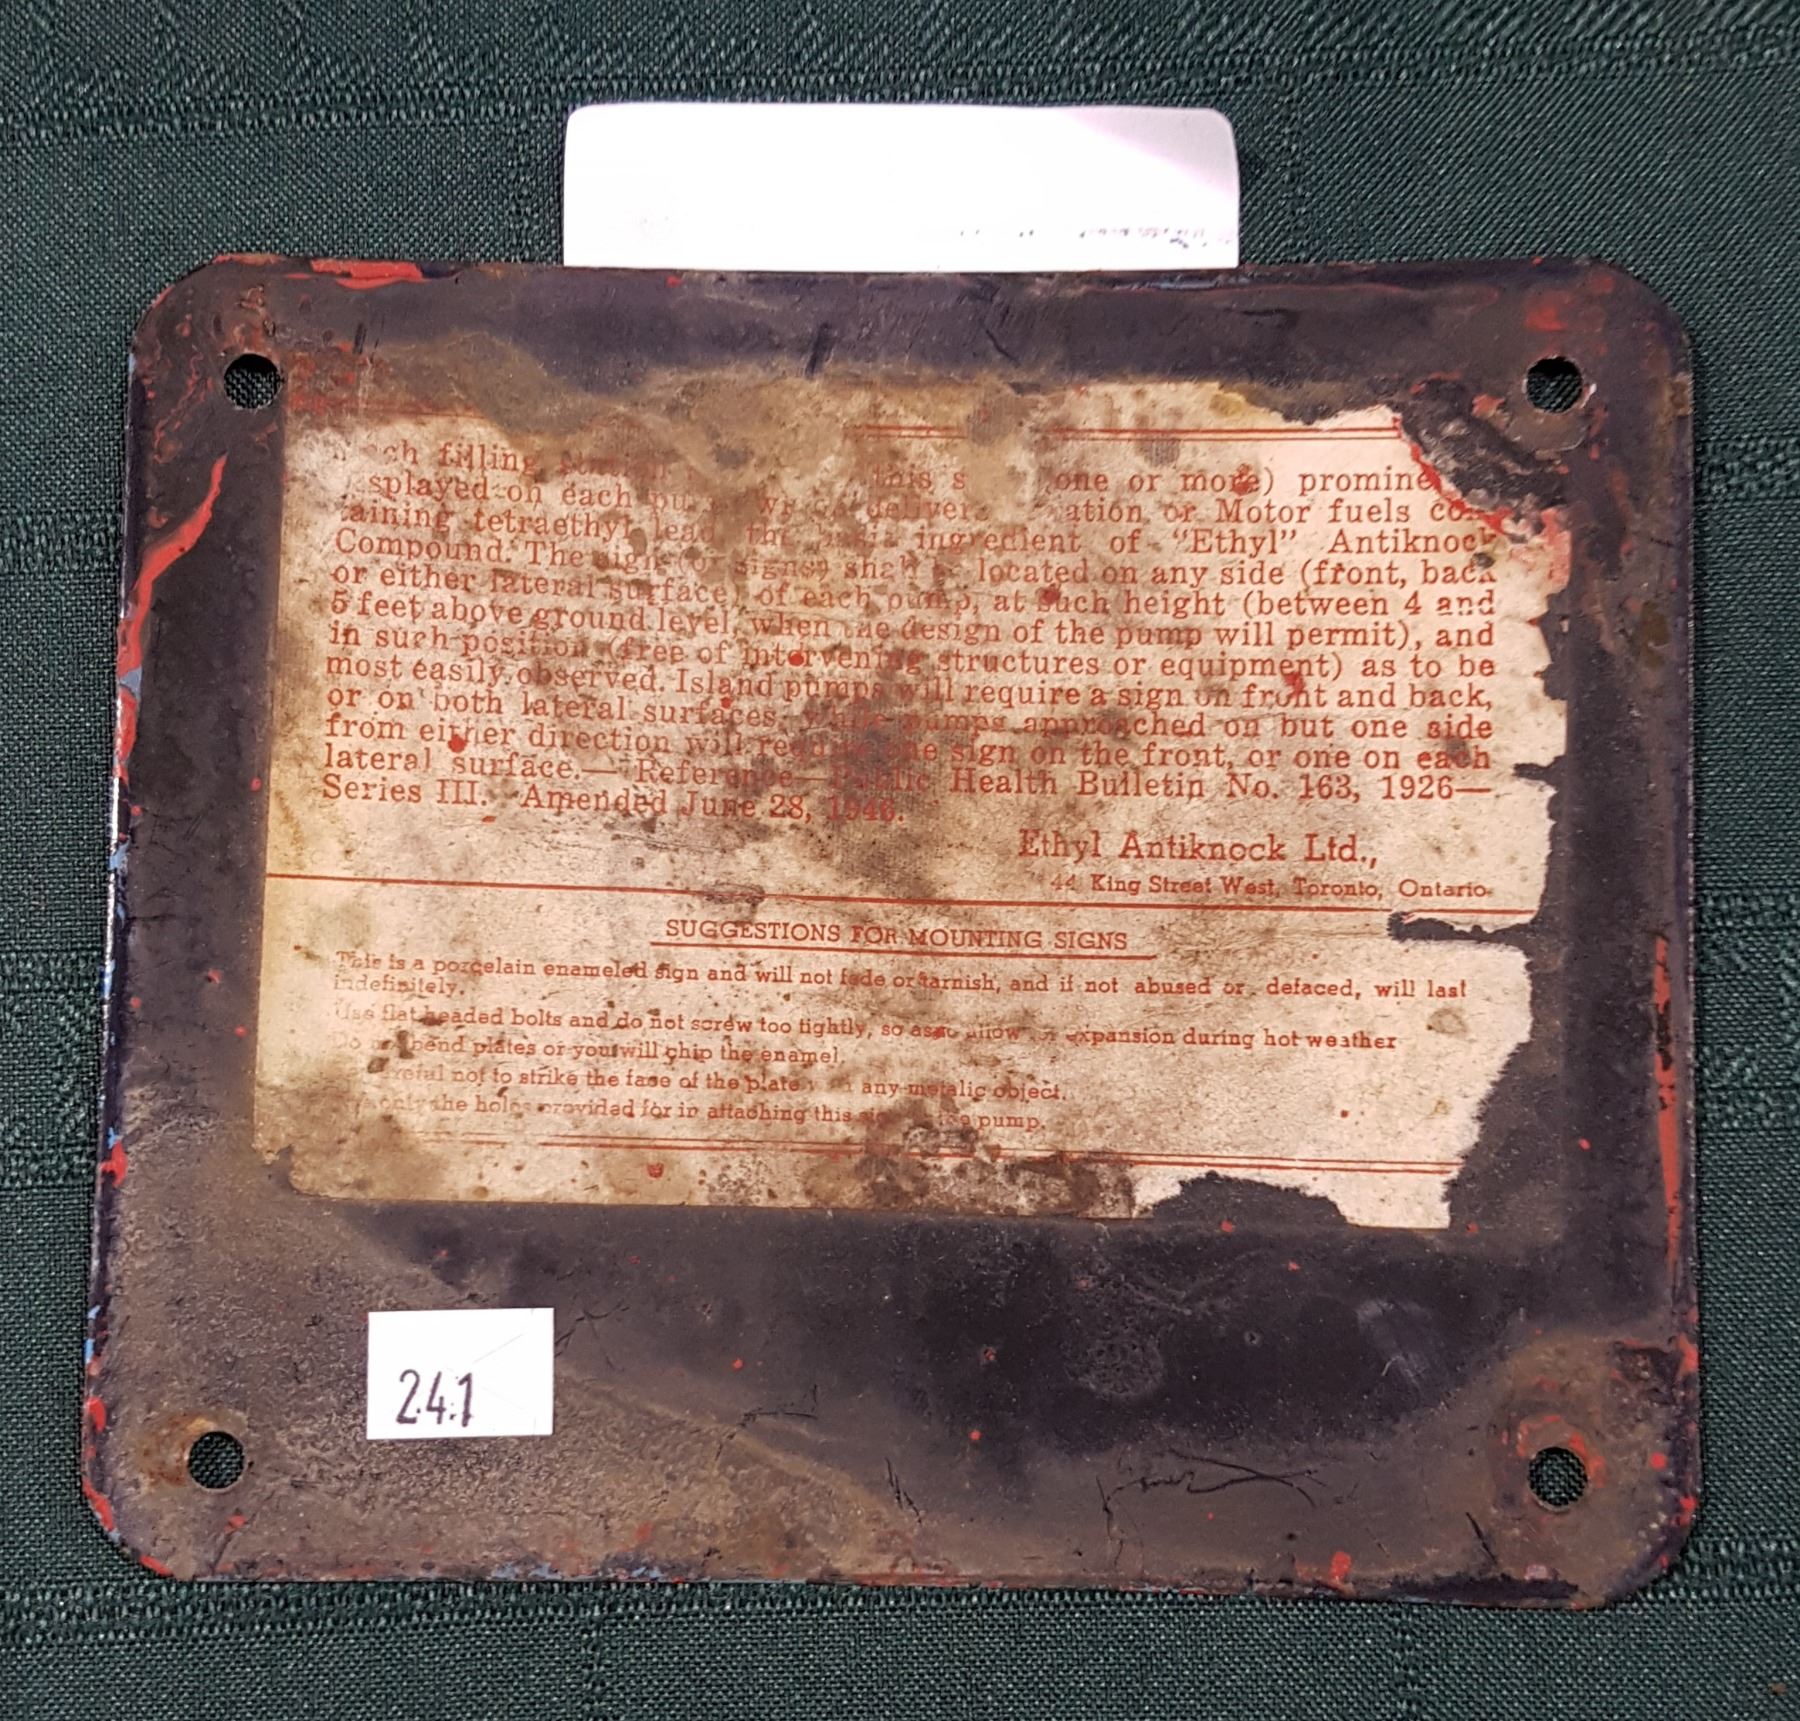 ch filling station this s one or more) promine
splayed on each deliver ation or Motor fuels co
taining tetraethyl lead, the basic ingredient of "Ethyl" Antiknock
Compound. The sign (or signs) shall be located on any side (front, back
or either lateral surface) of each pump, at such height (between 4 and
5 feet above ground level, when the design of the pump will permit), and
in such position (free of intervening structures or equipment) as to be
most easily observed. Island pumps will require a sign on front and back,
or on both lateral surfaces, while pumps approached on but one side
from either direction will require one sign on the front, or one on each
lateral surface.— Reference—Public Health Bulletin No. 163, 1926—
Series III. Amended June 28, 1946.
Ethyl Antiknock Ltd.,
44 King Street West, Toronto, Ontario
SUGGESTIONS FOR MOUNTING SIGNS
This is a porcelain enameled sign and will not fade or tarnish, and if not abused or defaced, will last
indefinitely.
Use flat headed bolts and do not screw too tightly, so as to allow for expansion during hot weather
Do not bend plates or you will chip the enamel.
careful not to strike the face of the plate with any metalic object.
only the holes provided for in attaching this sign pump.
241